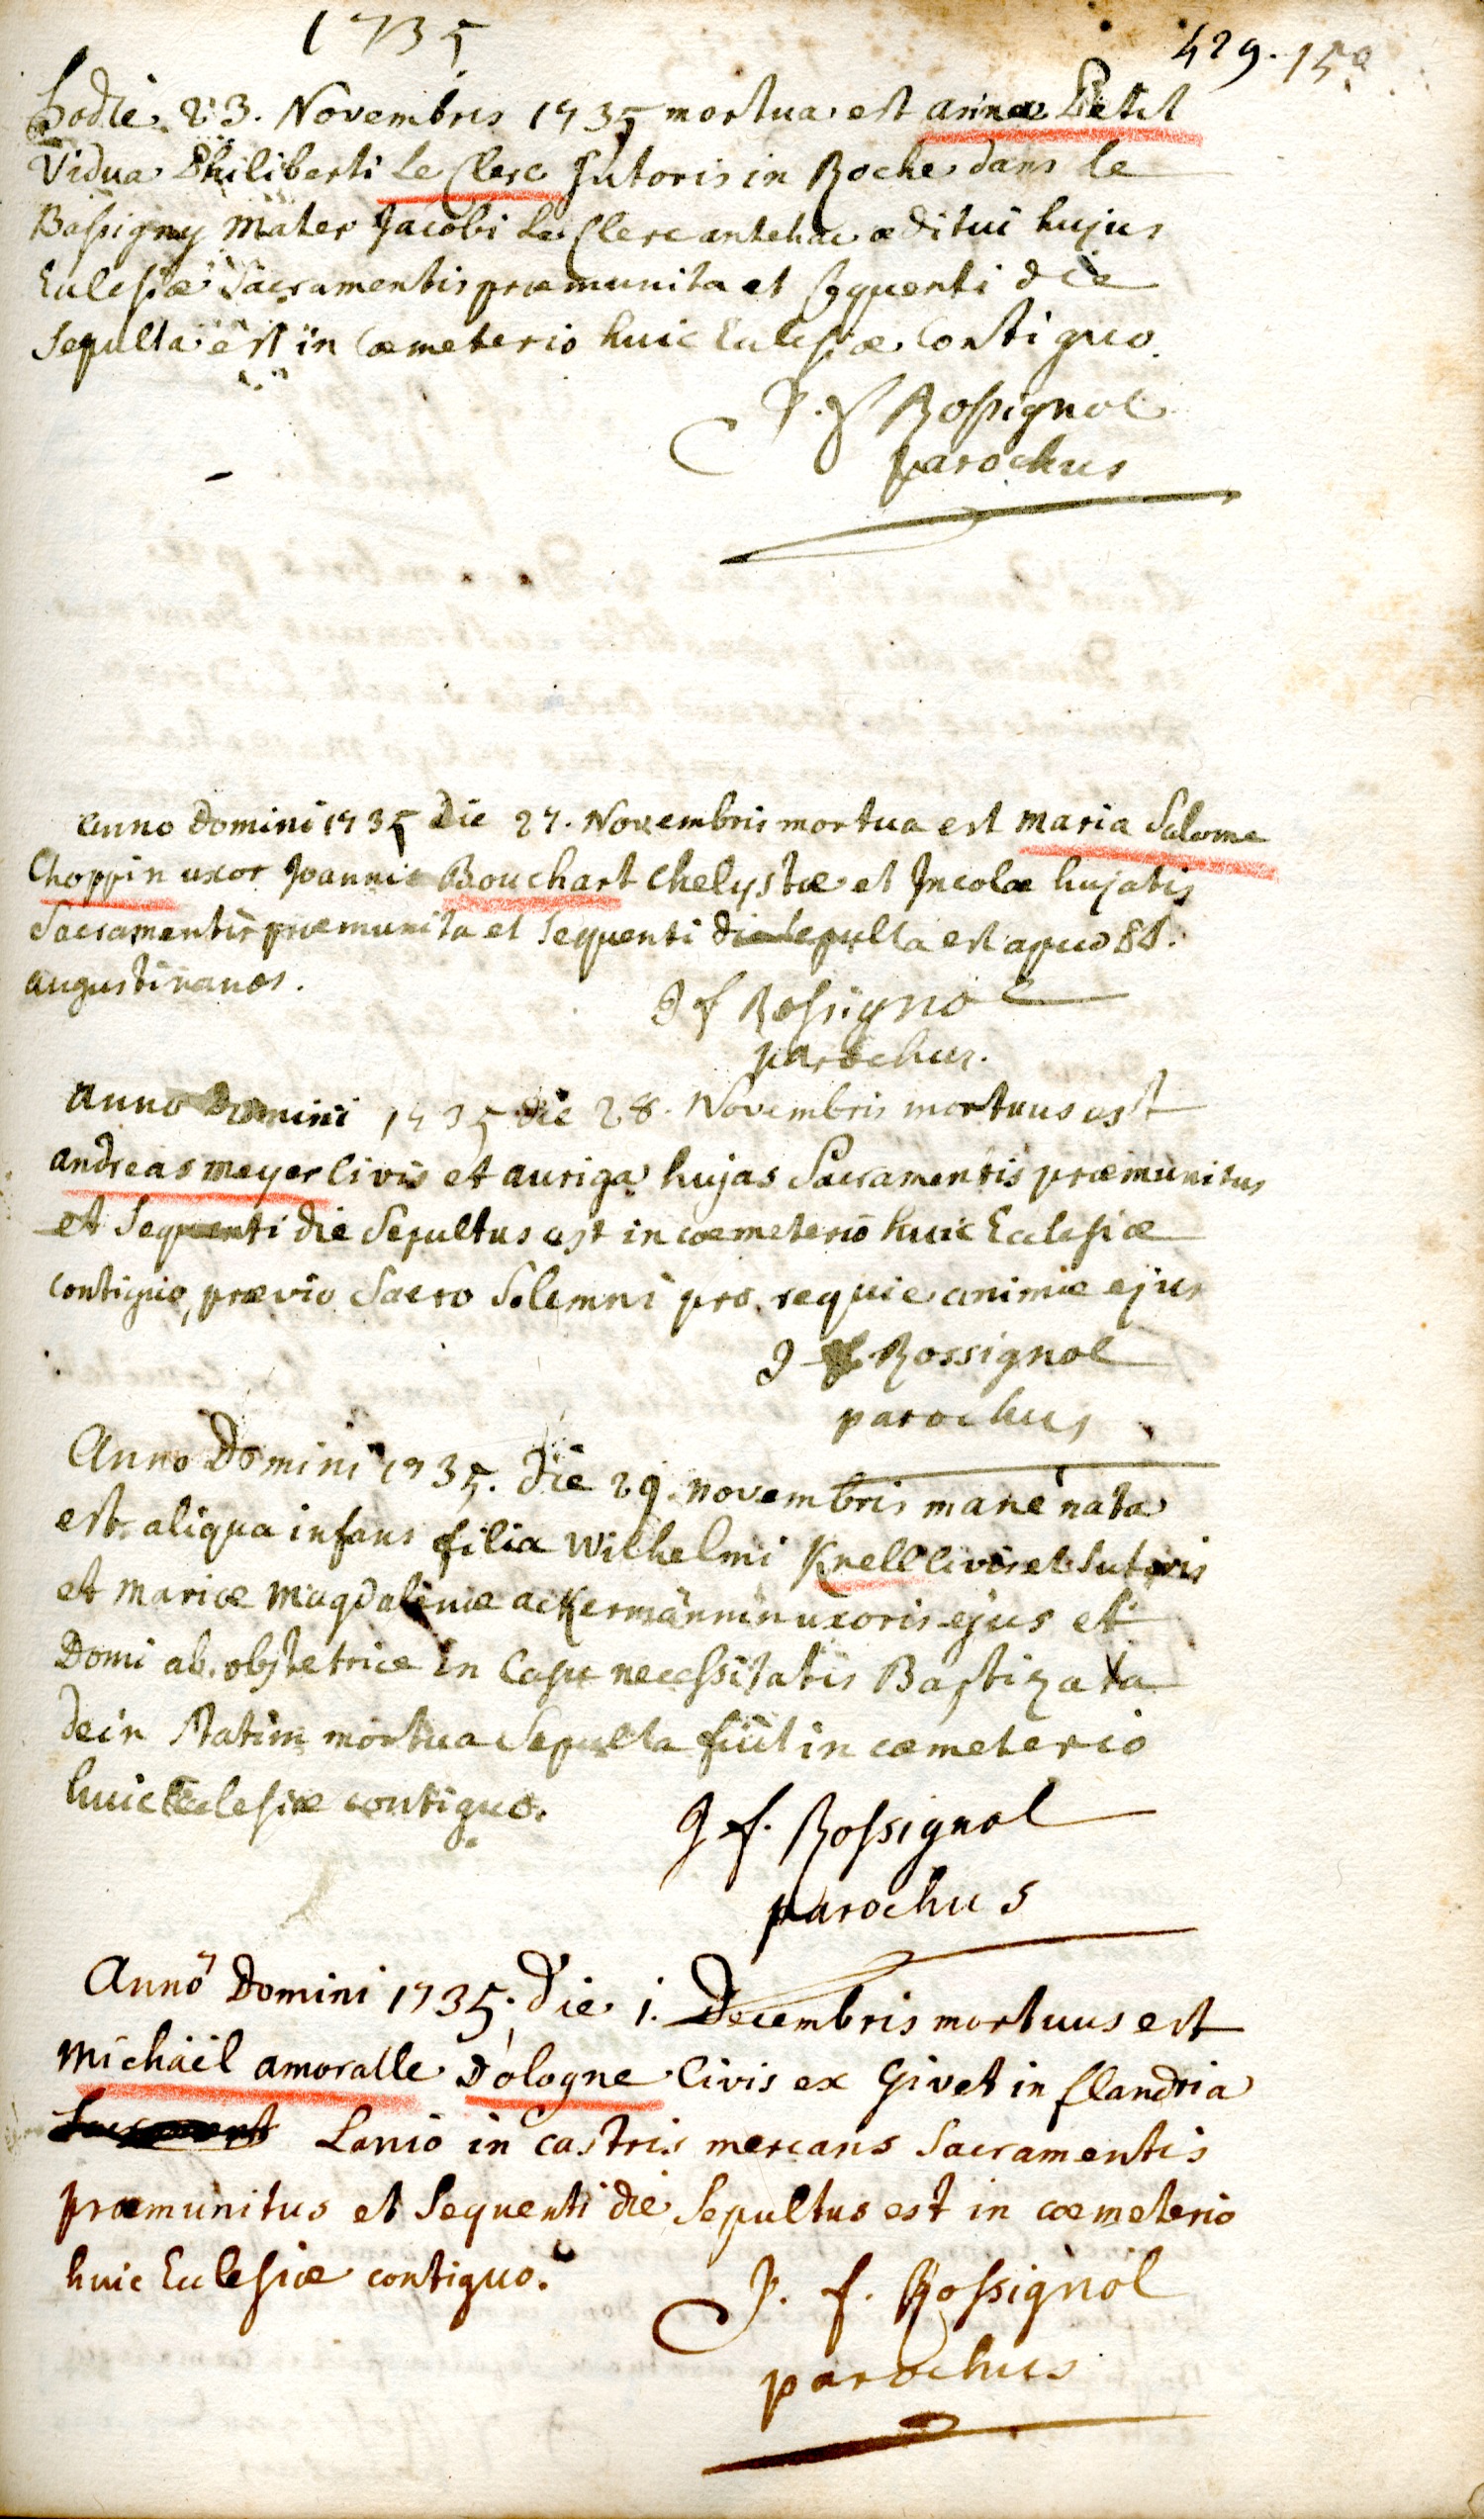 1735
429. 15a
hodie 23. Novembris 1735 mortua est anna Petit
Vidua Philiberti Le Clerc Sutoris in Roche dans le
Bassigny Mater Jacobi Le Clerc antehac æditui hujus
Ecclesiæ Sacramentis præmunita et sequenti die
sepulta est in Cœmeterio huic Ecclesiæ Contiguo.
J. f Rossignol
parochus
anno Domini 1735 Die 27. Novembris mortua est Maria Salome
Choppin uxor Joannis Bouchart Chelystæ et Incolæ hujatis
Sacramentis præmunita et sequenti die sepulta est apud SS.
augustinanos.
J f Rossignol
parochus.
anno Domini 1735 die 28. Novembris mortuus est
andreas meyer Civis et auriga hujas Sacramentis præmunitus
et sequenti die sepultus est in cœmeterio huic Ecclesiæ
contiguo, prævio Sacro Solemni pro requie animæ ejus
J f Rossignol
parochus
Anno Domini 1735. die 29. novembris mane nata
est aliqua infans filia Wilhelmi Knell Civis et Sutoris
et Mariæ Magdalenæ ackermännin uxoris ejus et
Domi ab obstetrice in Casu necessitatis Baptizata
dein statim mortua Sepulta fuit in cœmeterio
huic Ecclesiæ contiguo.
J f. Rossignol
parochus
Anno Domini 1735. die 1. Decembris mortuus est
Michaël amoralle D'ologne Civis ex Givet in flandria
Lanio in castris mercans Sacramentis
præmunitus et Sequenti die Sepultus est in cœmeterio
huic Ecclesiæ contiguo.
J. f. Rossignol
parochus